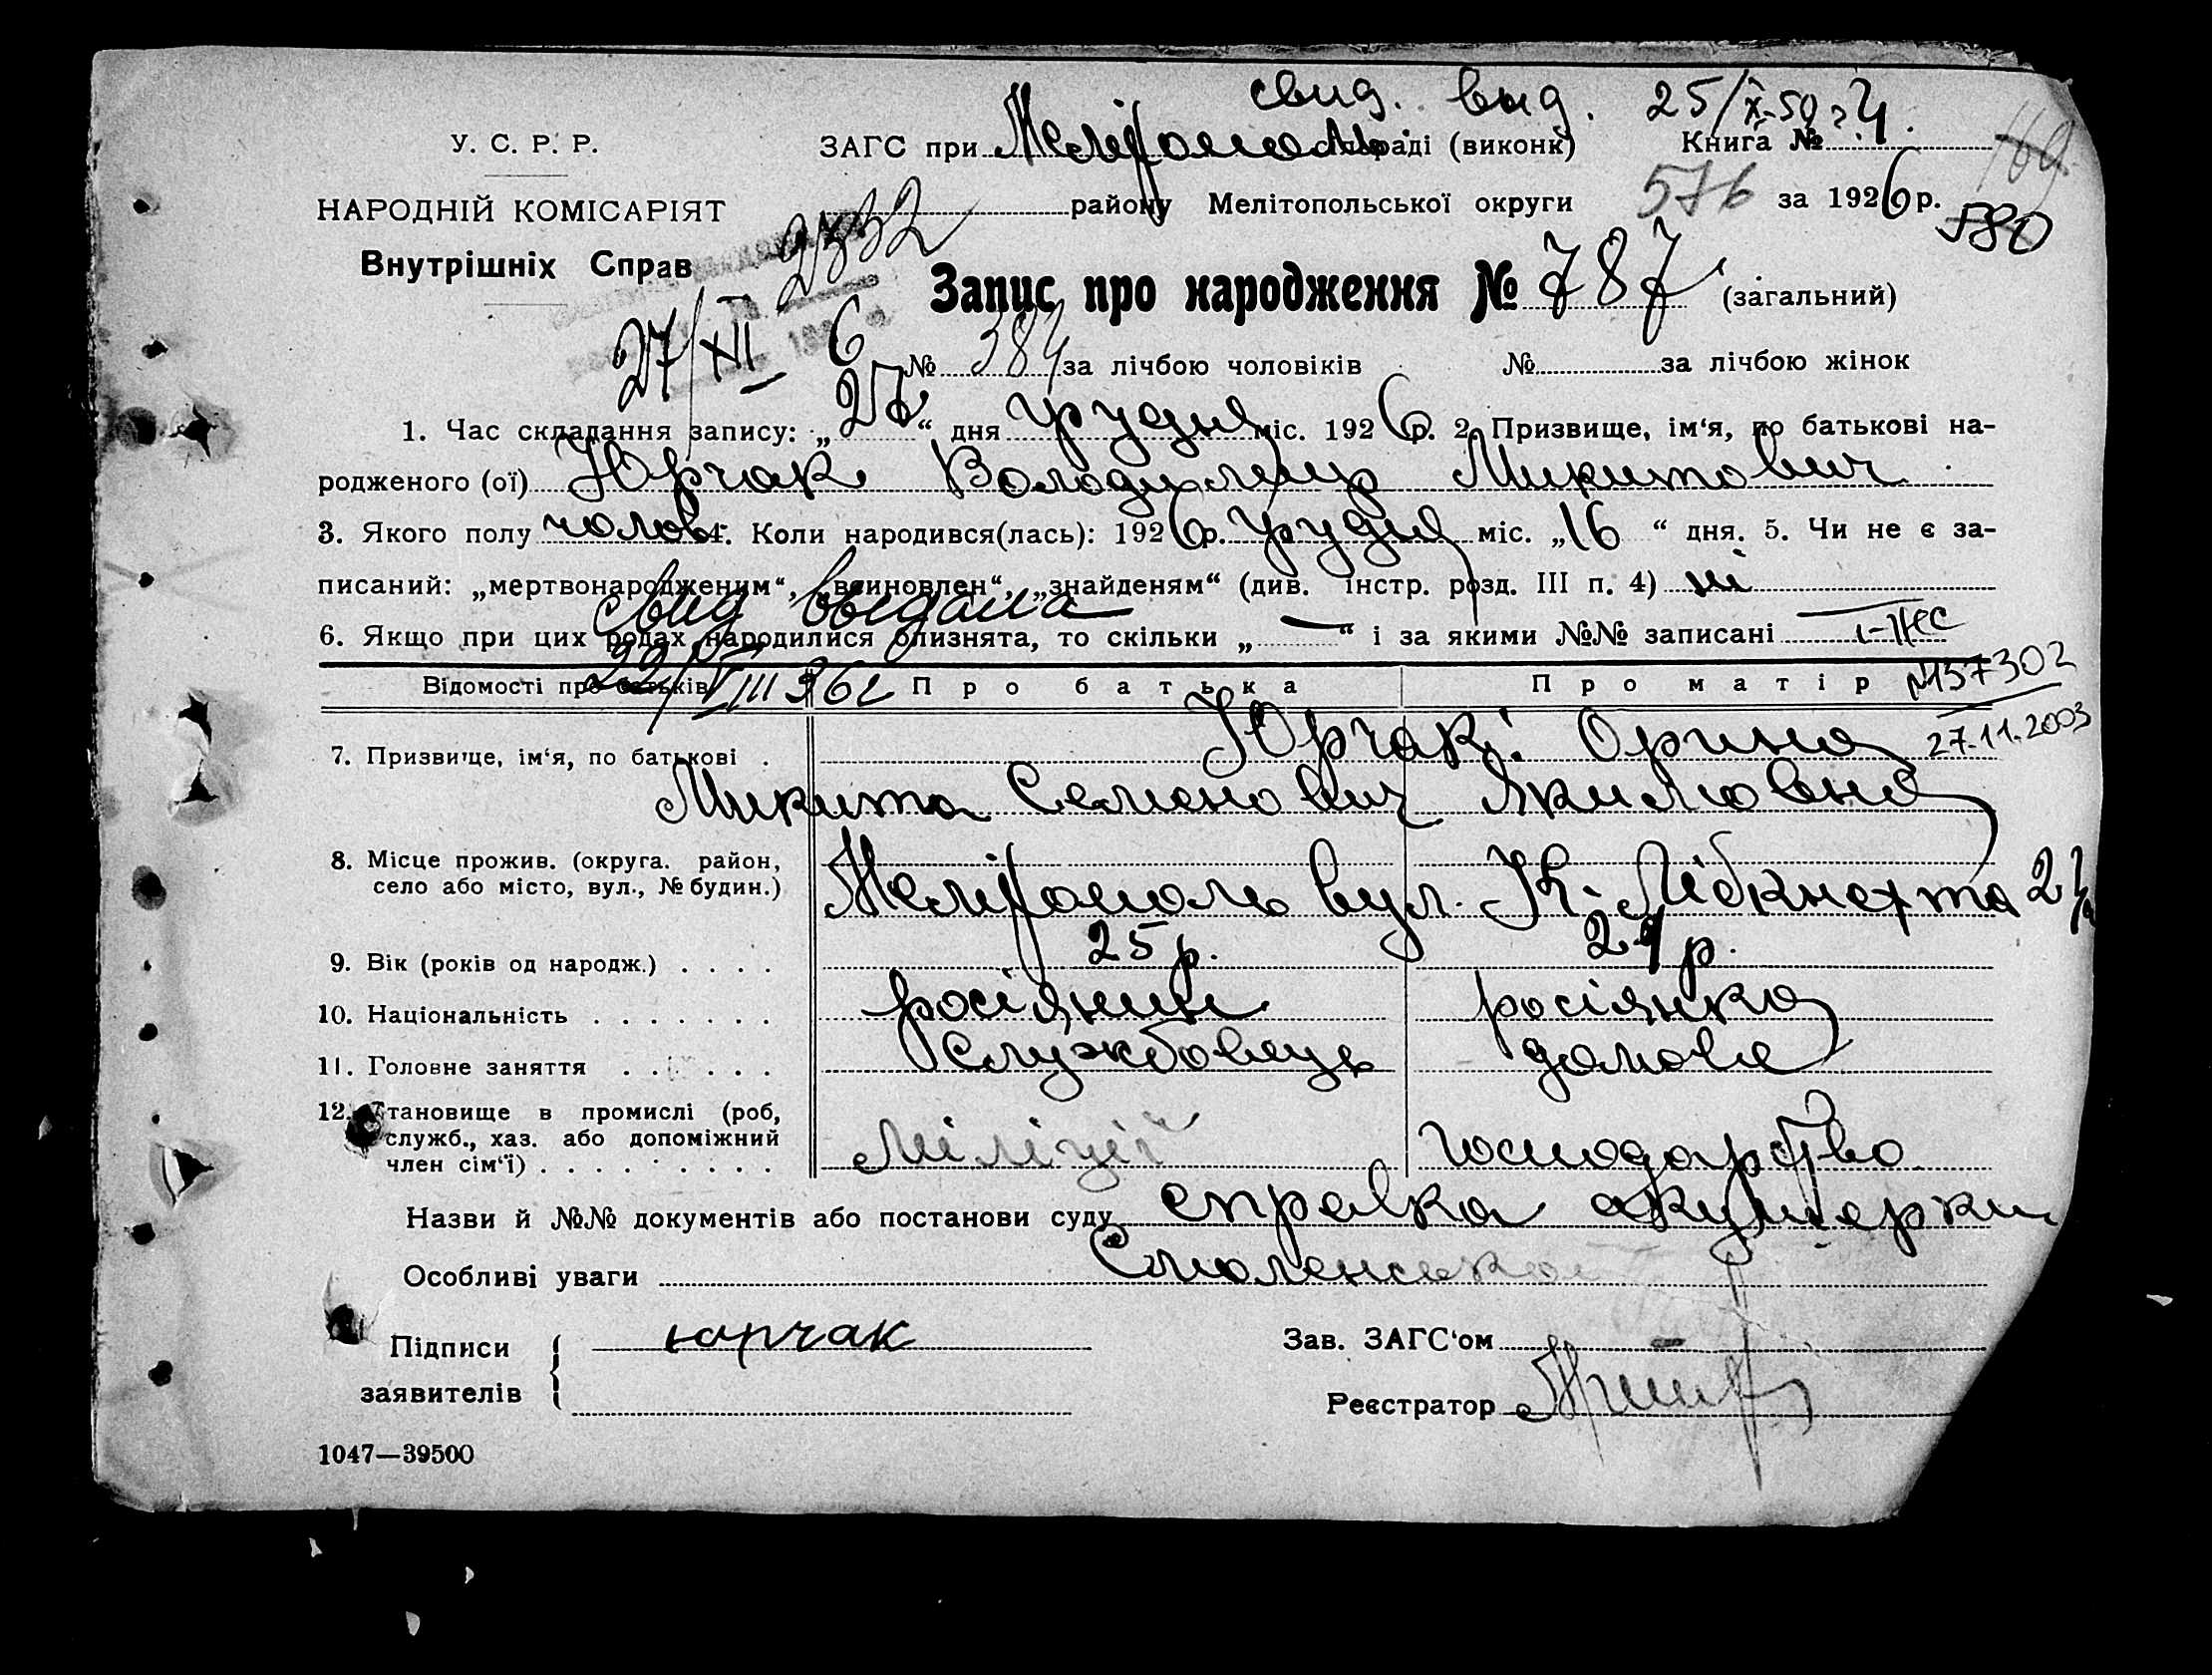 свид. выд. 25/X-59 г.
У. С. Р. Р. ЗАГС при Меліtополь міськраді (виконк) Книга № 4.
169
НАРОДНІЙ КОМІСАРІЯТ району Мелітопольської округи 576 за 1926 р.
580
Внутрішніх Справ 2332
Запис про народження № 787 (загальний)
27/XII 6 № 384 за лічбою чоловіків № за лічбою жінок
1. Час складання запису: „27“ дня грудня міс. 1926 р. 2. Призвище, ім‘я, по батькові на-
родженого (ої) Юрчак Володимир Микитович
3. Якого полу чолов. 4. Коли народився(лась): 1926 р. грудня міс. „16“ дня. 5. Чи не є за-
писаний: „мертвонародженим“, „всиновлен“, „знайденям“ (див. інстр. розд. III п. 4) ні
свид выдана
6. Якщо при цих родах народилися близнята, то скільки „—“ і за якими №№ записані —
22/VIII 36 г
I-ЖС
№137302
27.11.2003
Відомості про батьків Про батька Про матір
7. Призвище, ім‘я, по батькові . Юрчакі Орина
Микита Семенович Якимовна
8. Місце прожив. (округа. район,
село або місто, вул., № будин.) Меліtополь вул. К. Лібкнехта
9. Вік (років од народж.) . . . . 25 р. 24 р.
10. Національність . . . . . . . росіянин росіянка
11. Головне заняття . . . . . . Службовець домове
12. Становище в промислі (роб,
служб., хаз. або допоміжний
член сім‘ї) . . . . . . . . . міліції господарство
Назви й №№ документів або постанови суду справка акушерки
Особливі уваги Смоленської
Підписи юрчак Зав. ЗАГС‘ом
заявителів Реєстратор
1047—39500